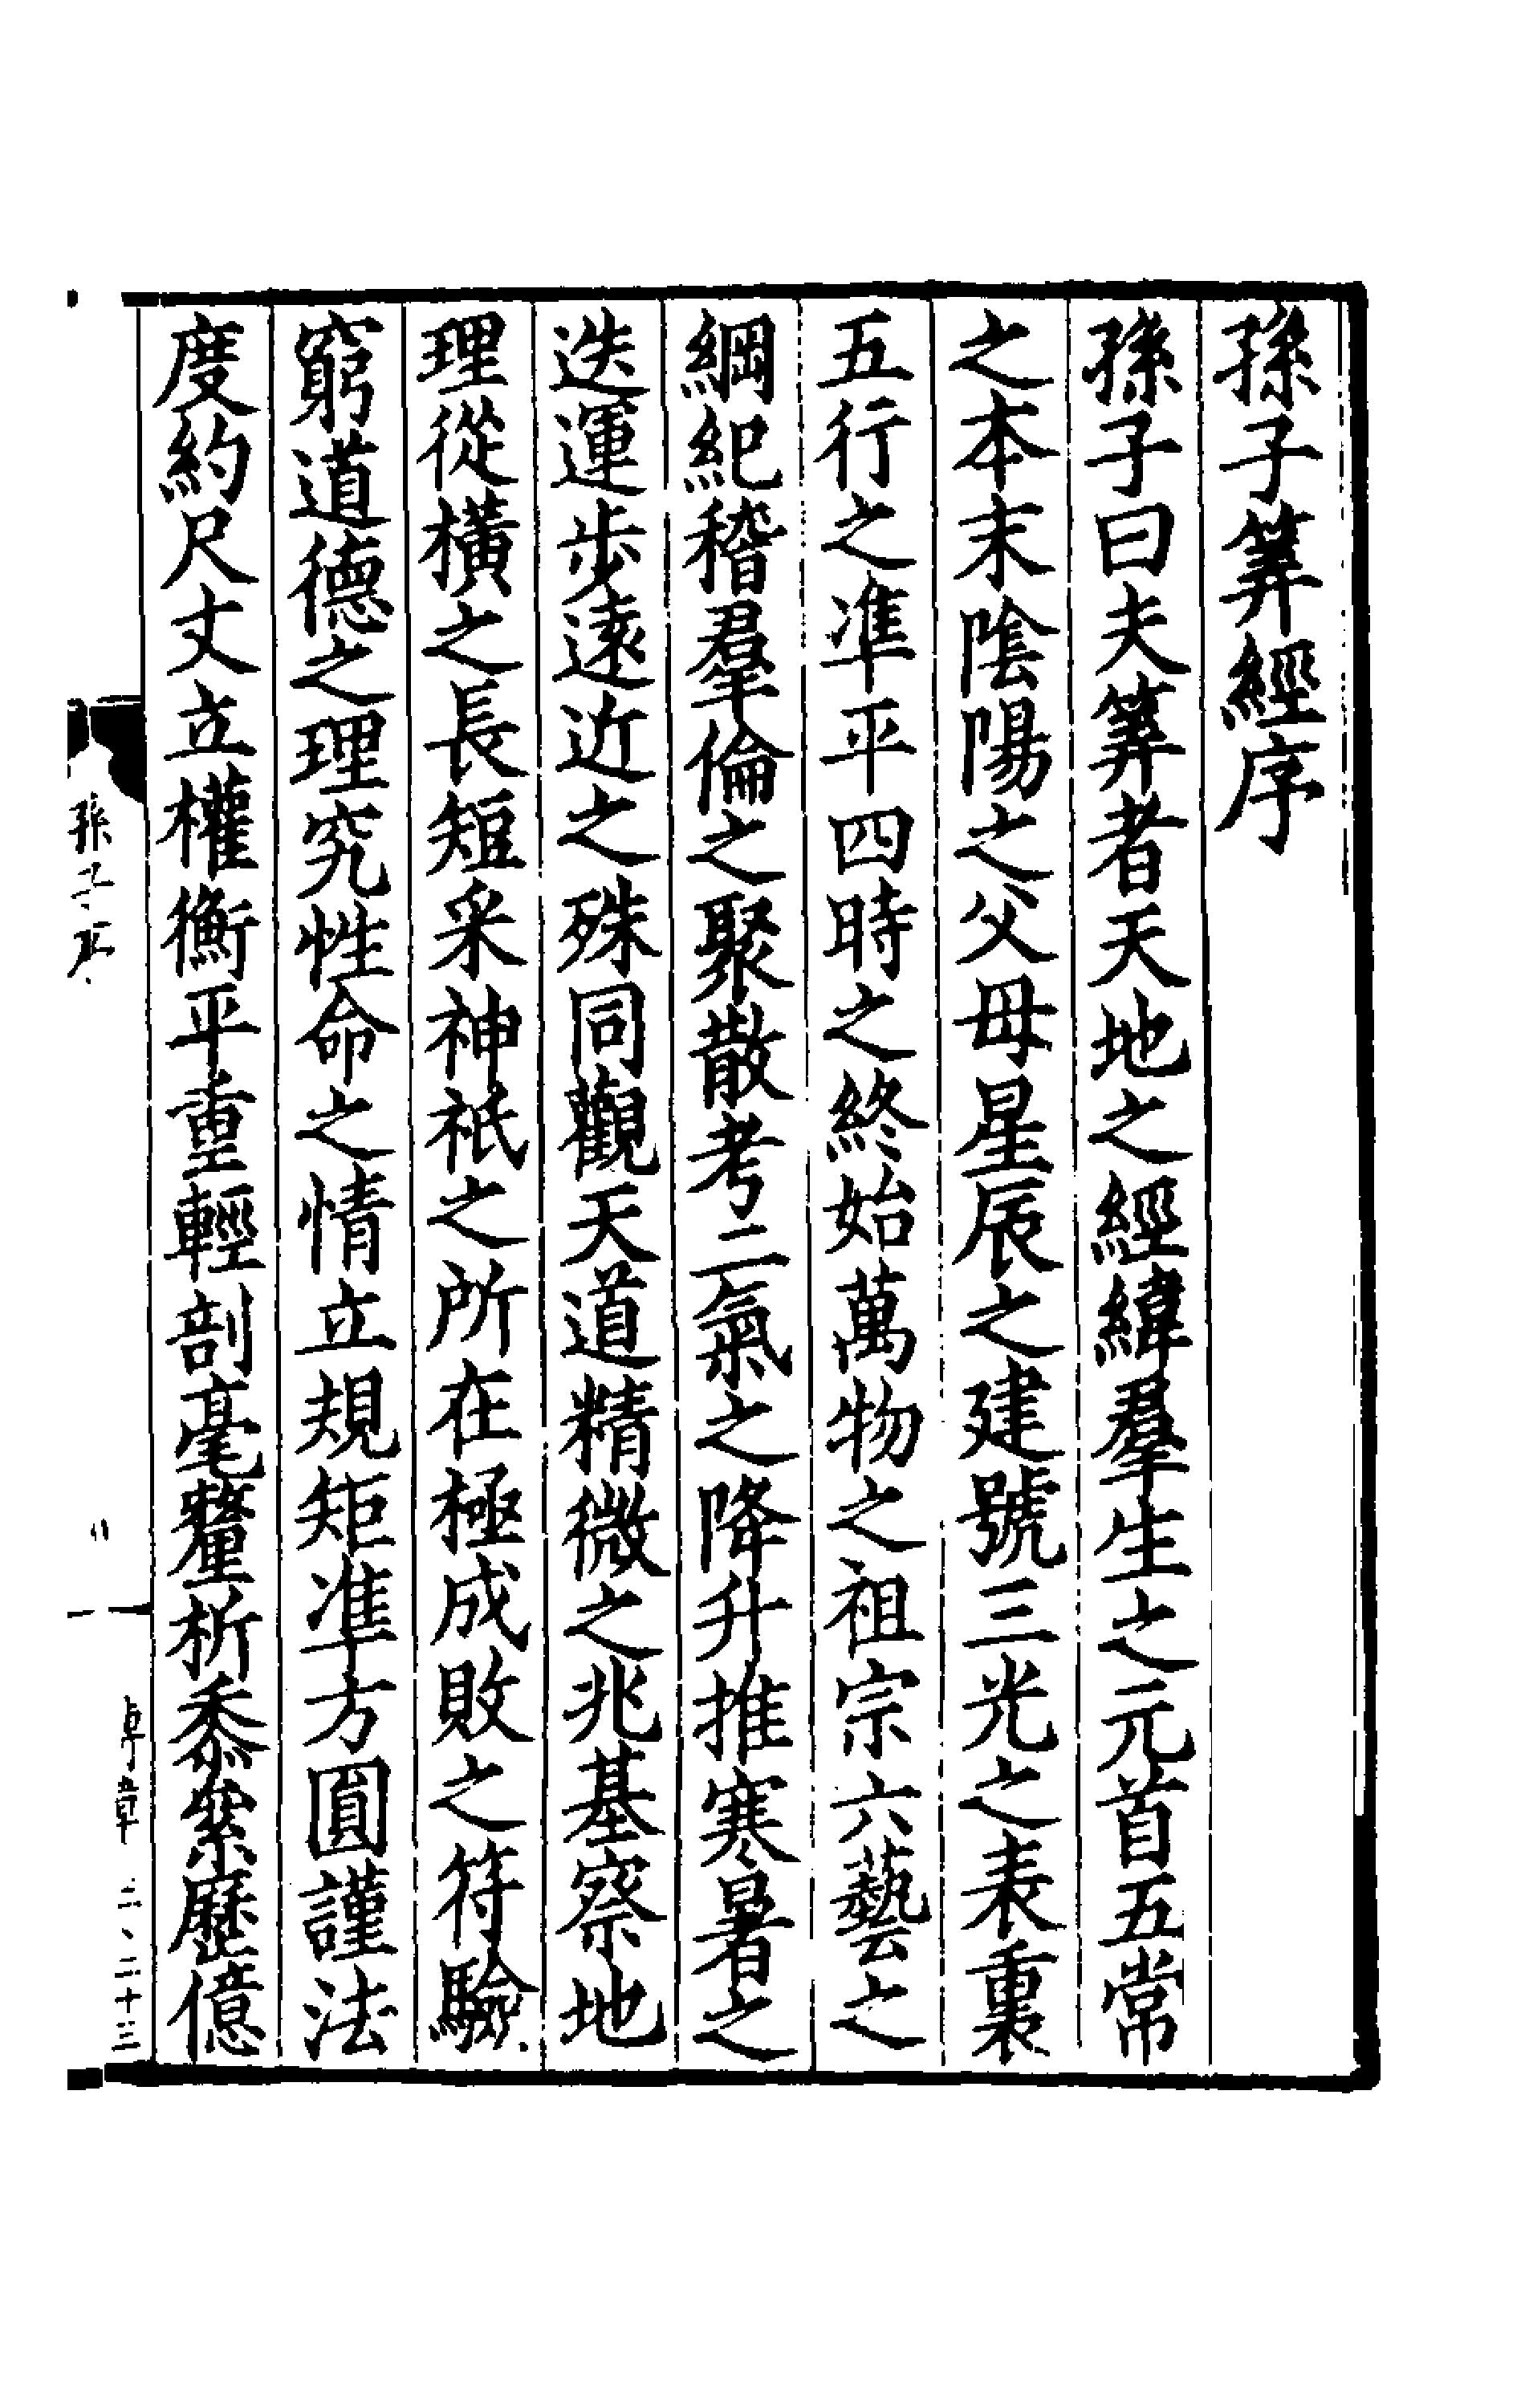 孫子筭經序
孫子曰夫筭者天地之經緯羣生之元首五常
之本末陰陽之父母星辰之建號三光之表裏
五行之準平四時之終始萬物之祖宗六藝之
綱紀稽羣倫之聚散考二氣之降升推寒暑之
迭運步遠近之殊同觀天道精微之兆基察地
理從橫之長短采神祇之所在極成敗之符驗
窮道德之理究性命之情立規矩準方圓謹法
度約尺丈立權衡平重輕剖毫釐析黍絫歷億
孫子序
一
章 三、二十三